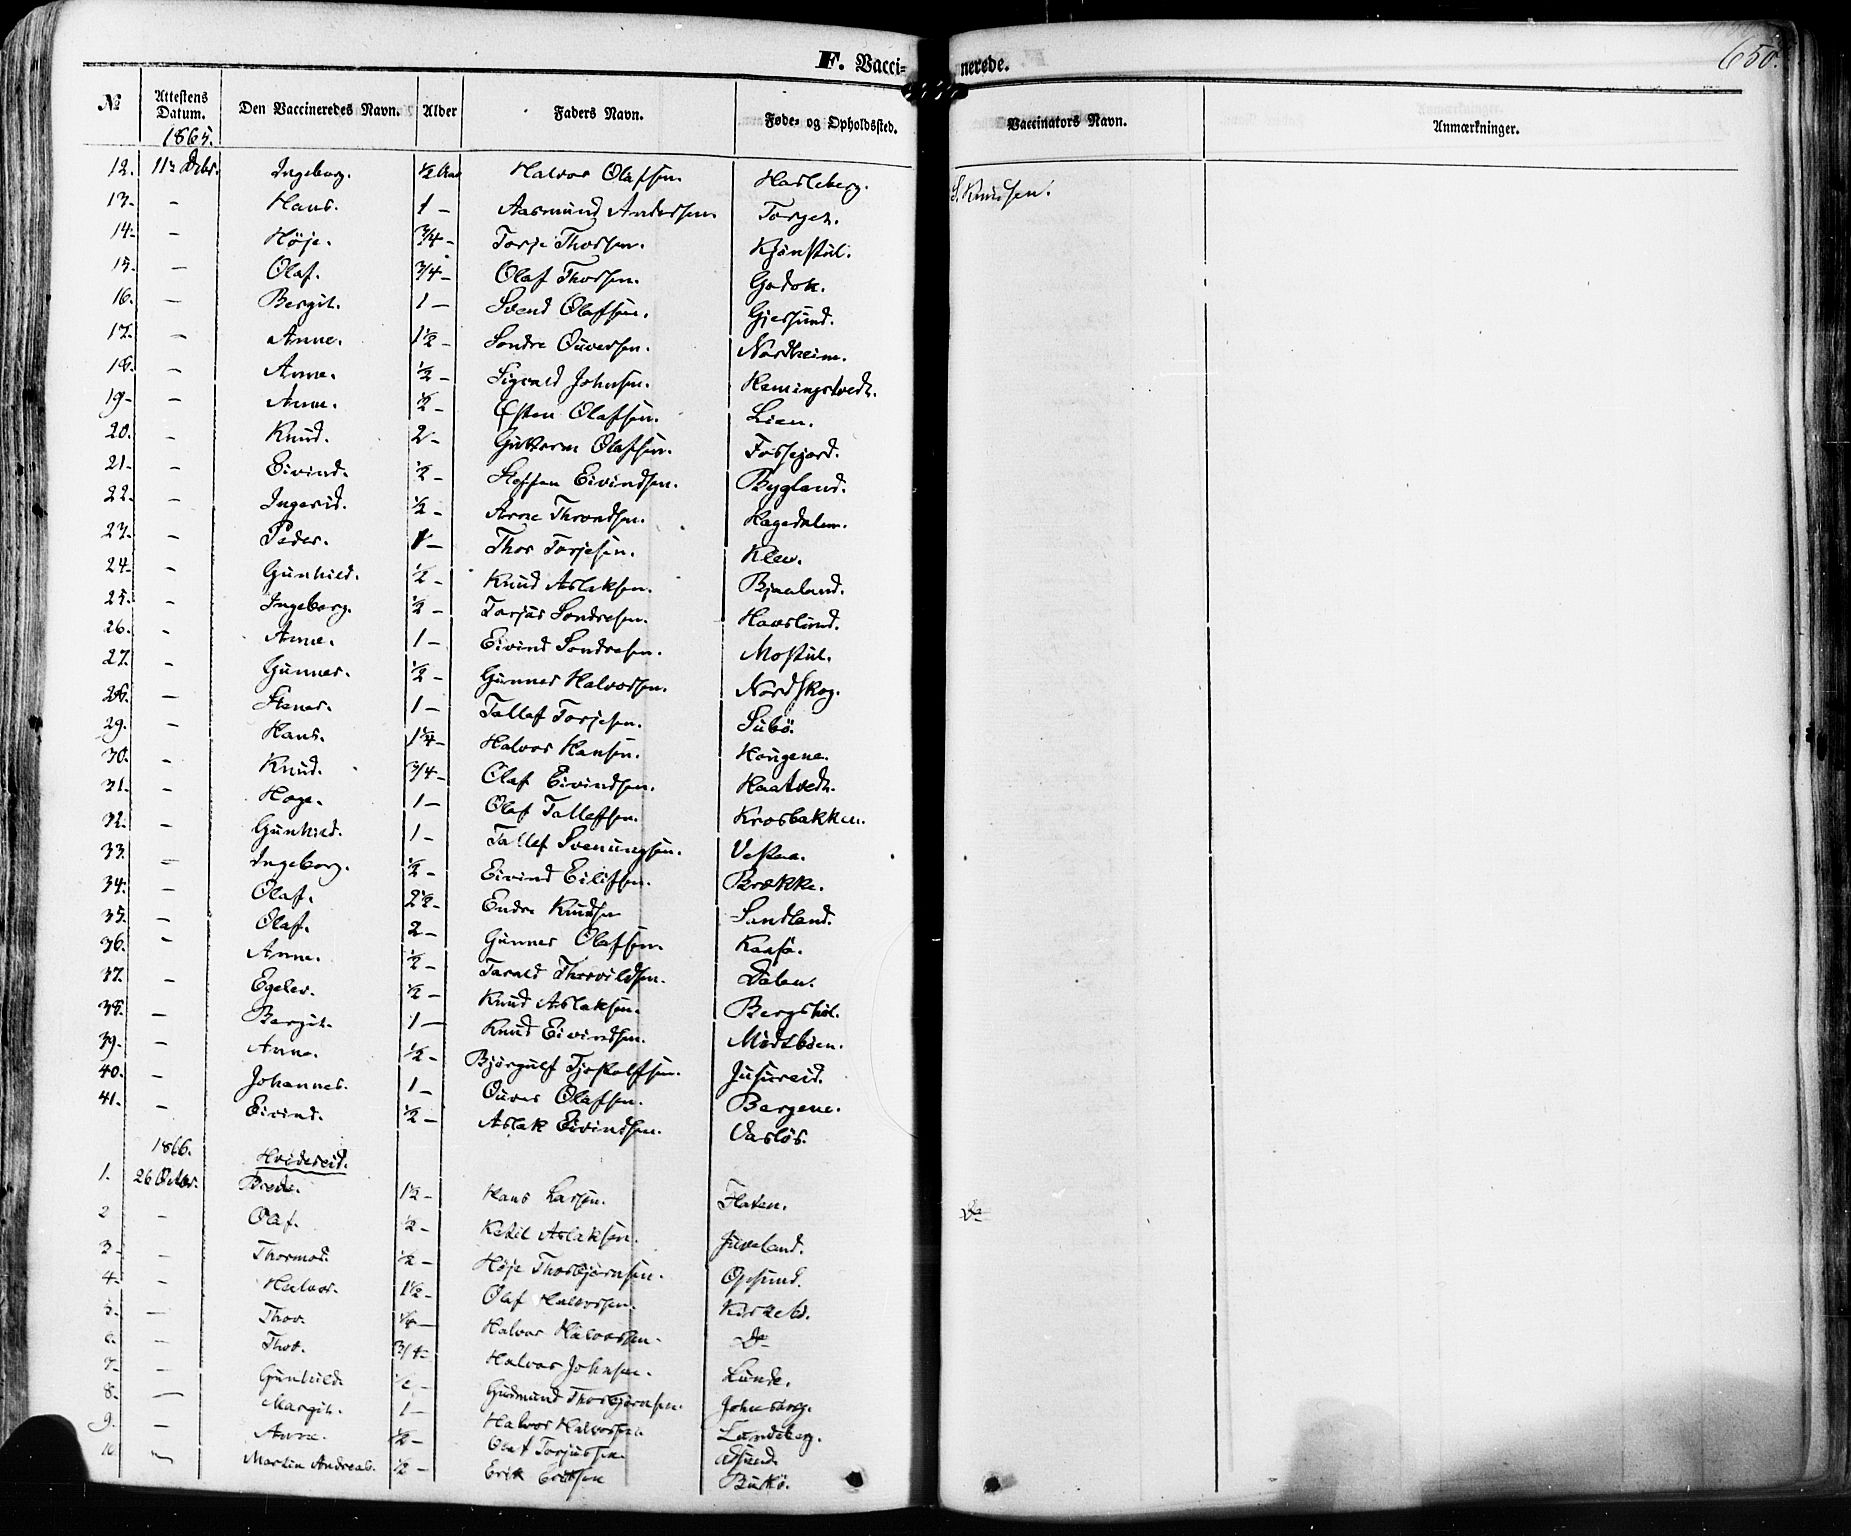 650.
F. Vacci- nerede.
№ Attestens Datum. Den Vaccineredes Navn. Alder Faders Navn. Føde- og Opholdssted. Vaccinators Navn. Anmærkninger.
1865.
12. 11 Dcbr. Ingeborg. ½ Halvor Olafsen. Hasleberg. S. Knudsen.
13. - Hans. 1 - Aasmund Andersen. Torget.
14. - Høje. 3/4 - Torje Thorsen. Kjönstul.
15. - Olaf. 3/4 - Olaf Thorsen. Godok.
16. - Bergit. 1 - Svend Olafsen. Gjersund.
17. - Anne. 1½ - Sondre Ouversen. Nordheim.
18. - Anne. ½ - Sigvald Johnsen. Hemingstvedt.
19. - Anne. ½ - Esten Olafsen. Lien.
20. - Knud. 2 - Guttorm Olafsen. Fossejord.
21. - Eivind. ½ - Steffen Eivindsen. Bygland.
22. - Ingerid. ½ - Arne Throndsen. Hagedalen.
23. - Peder. 1 - Thor Torjesen. Klev.
24. - Gunhild. ½ - Knud Aslaksen. Bjaaland.
25. - Ingeborg. ½ - Torjus Sondresen. Haverlund.
26. - Anne. 1 - Eivind Sondresen. Mostul.
27. - Gunner. ½ - Gunner Halvorsen. Nordskog.
28. - Stener. 1 - Tallef Torjesen. Subö.
29. - Hans. 1¼ - Halvor Hansen. Haugene.
30. - Knud. 3/4 - Olaf Eivindsen. Haatvedt.
31. - Hage. 1 - Olaf Tallefsen. Krosbakken.
32. - Gunhild. 1 - Tallef Svenungsen. Vestaa.
33. - Ingeborg. ½ - Eivind Eilifsen. Brække.
34. - Olaf. 2½ - Endre Knudsen Sandland.
35. - Olaf. 2 - Gunner Olafsen. Kaasa.
36. - Anne. ½ - Tarald Thorvildsen. Dalen.
37. - Egelev. ½ - Knud Aslaksen. Bergstul.
38. - Bergit. 1 - Knud Eivindsen. Midtböen.
39. - Anne. ½ - Björgulf Tjostolfsen. Jusureid.
40. - Johannes. 1 - Ouver Olafsen. Bergene.
41. - Eivind. ½ - Aslak Eivindsen. Vaslös.
1866. Hvideseid.
1. 26 Octbr. Brede. 1½ - Hans Larsen. Flaten. Do
2 - Olaf. ½ - Ketil Aslaksen. Juveland.
3 - Thormod. ½ - Høje Thorbjørnsen. Opsund.
4. - Halvor. 1½ - Olaf Halvorsen. Kirkebö.
5. - Thov. ¼ - Halvor Halvorsen. Do
6. - Thov. 3/4 - Halvor Johnsen. Lunde.
7. - Gunhild. ½ - Gudmund Thorbjørnsen. Johnsborg.
8. - Margit. 1 - Halvor Halvorsen. Lundeberg.
9. - Anne. ½ - Olaf Torjussen.
10 - Martin Andreas. ½ - Erik Eriksen Buskö.